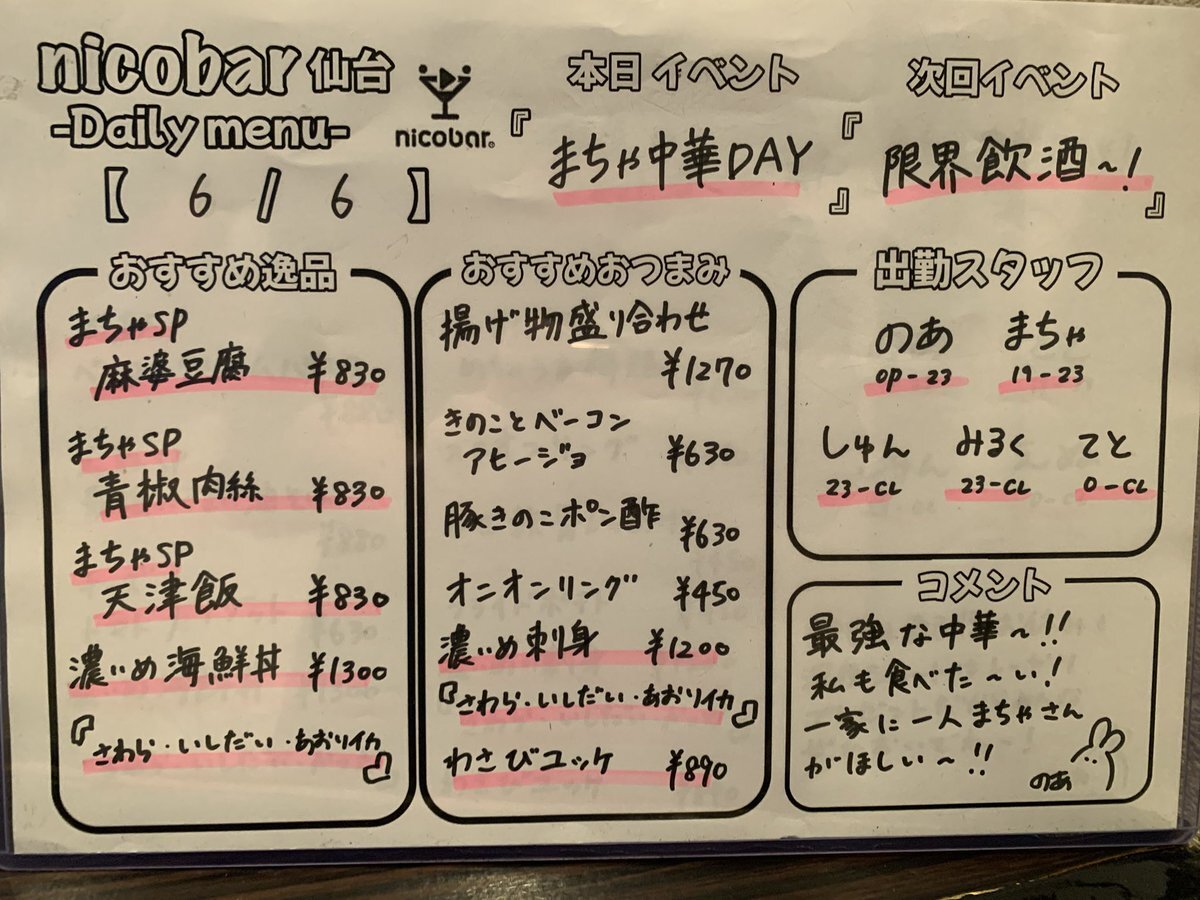 nicobar 仙台
-Daily menu-
【 6 / 6 】
nicobar
本日イベント
『まちゃ中華DAY』
次回イベント
『限界飲酒〜!』
おすすめ逸品
まちゃSP
麻婆豆腐 ¥830
まちゃSP
青椒肉絲 ¥830
まちゃSP
天津飯 ¥830
濃いめ海鮮丼 ¥1300
『さわら・いしだい・あおりイカ』
おすすめおつまみ
揚げ物盛り合わせ
¥1270
きのことベーコン
アヒージョ ¥630
豚きのこポン酢 ¥630
オニオンリング ¥450
濃いめ刺身 ¥1200
『さわら・いしだい・あおりイカ』
わさびユッケ ¥890
出勤スタッフ
のあ まちゃ
OP-23 19-23
しゅん みるく てと
23-CL 23-CL 0-CL
コメント
最強な中華〜!!
私も食べた〜い!
一家に一人まちゃさん
がほしい〜!!
のあ